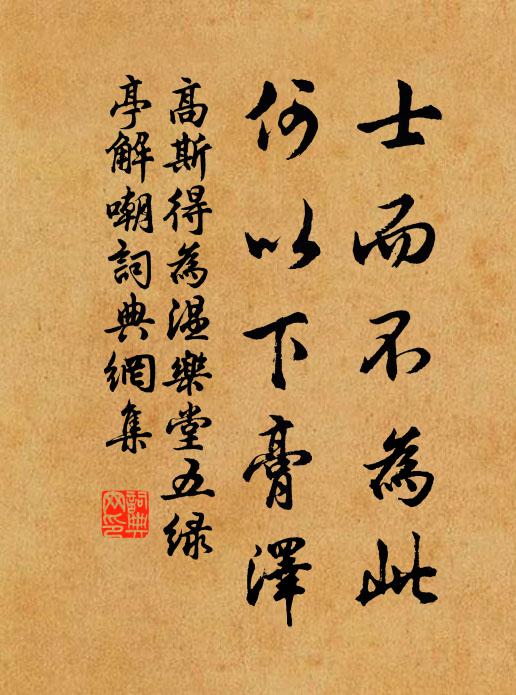 士而不為此
何以下膏澤
高斯得為湿樂堂五绿
亭解嘲詞典網集
詞典
网印